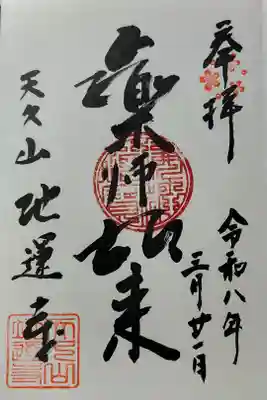 奉拝
令和八年
三月廿一日
薬師如来
天久山 地運寺